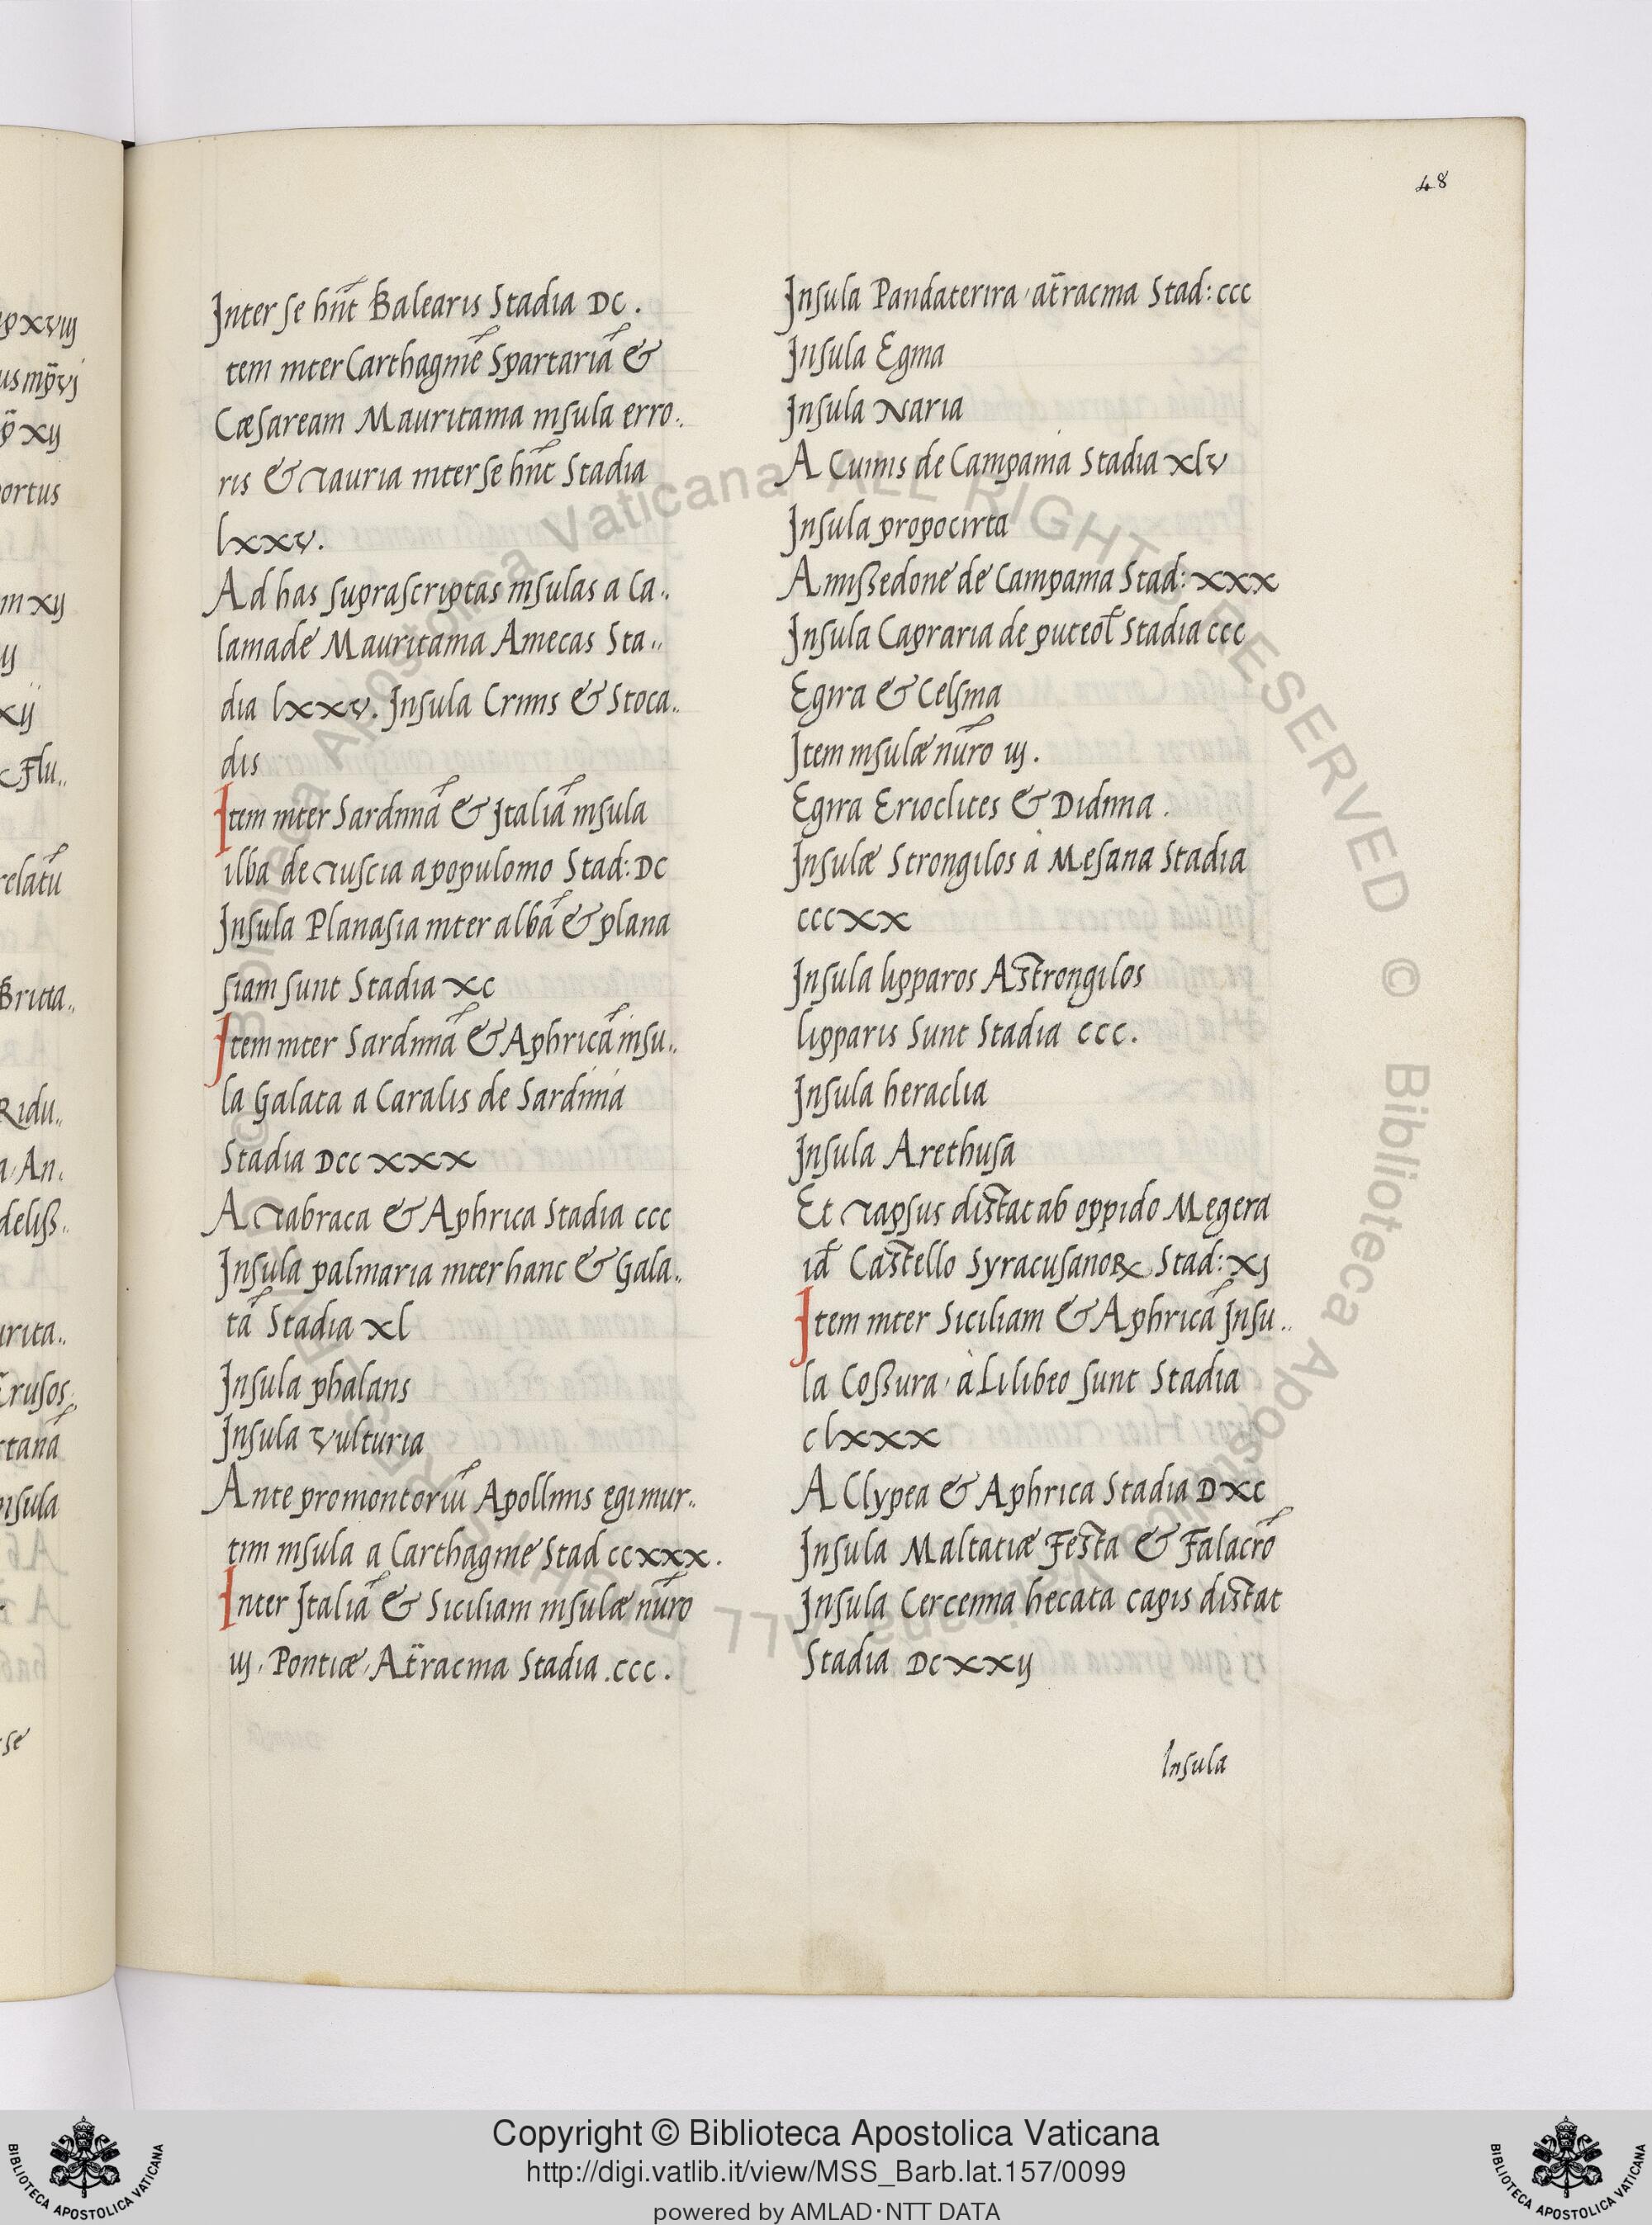 48
Inter se hn̄t Balearis Stadia DC.
tem inter Carthaginē Spartariā &
Cæsaream Mauritania insula erro..
ris & Tauria inter se hn̄t Stadia
lxxv.
Ad has suprascriptas insulas a Ca..
lamade Mauritania Amecas Sta..
dia lxxv. Insula Crinis & Stoca..
dis
Item inter Sardiniā & Italiā insula
ilba de Tuscia a populonio Stad: DC
Insula Planasia inter albā & plana
siam sunt Stadia xc
Item inter Sardiniā & Aphricā insu..
la Galata a Caralis de Sardinia
Stadia DCCxxx
A Tabraca & Aphrica Stadia ccc
Insula palmaria inter hanc & Gala..
tā Stadia xl
Insula phalans
Insula vulturia
Ante promontoriū Apollinis egimur..
tim insula a Carthagine Stad ccxxx.
Inter Italiā & Siciliam insulæ nūro
iij. Pontiæ, At̄racina Stadia .ccc.
Insula Pandaterira, at̄racina Stad: ccc
Insula Egina
Insula Naria
A Cumis de Campania Stadia xlv
Insula propocirta
A missedone de Campania Stad: xxx
Insula Capraria de puteol̄ Stadia ccc
Egira & Celsina
Item insulæ nūro iij.
Egira Erioclites & Didnna.
Insulæ Strongilos à Mesana Stadia
cccxx
Insula lipparos A Strongilos
lipparis Sunt Stadia ccc.
Insula heraclia
Insula Arethusa
Et Tapsus distat ab oppido Megera
id̄ Castello Syracusanoꝝ Stad: xj
Item inter Siciliam & Aphricā Insu..
la Cossura, à Lilibeo sunt Stadia
clxxx
A Clypea & Aphrica Stadia DXC
Insula Maltatiæ Festa & Falacrō
Insula Cercenna hecata capis distat
Stadia DCxxij
Insula
Copyright © Biblioteca Apostolica Vaticana
http://digi.vatlib.it/view/MSS_Barb.lat.157/0099
powered by AMLAD·NTT DATA